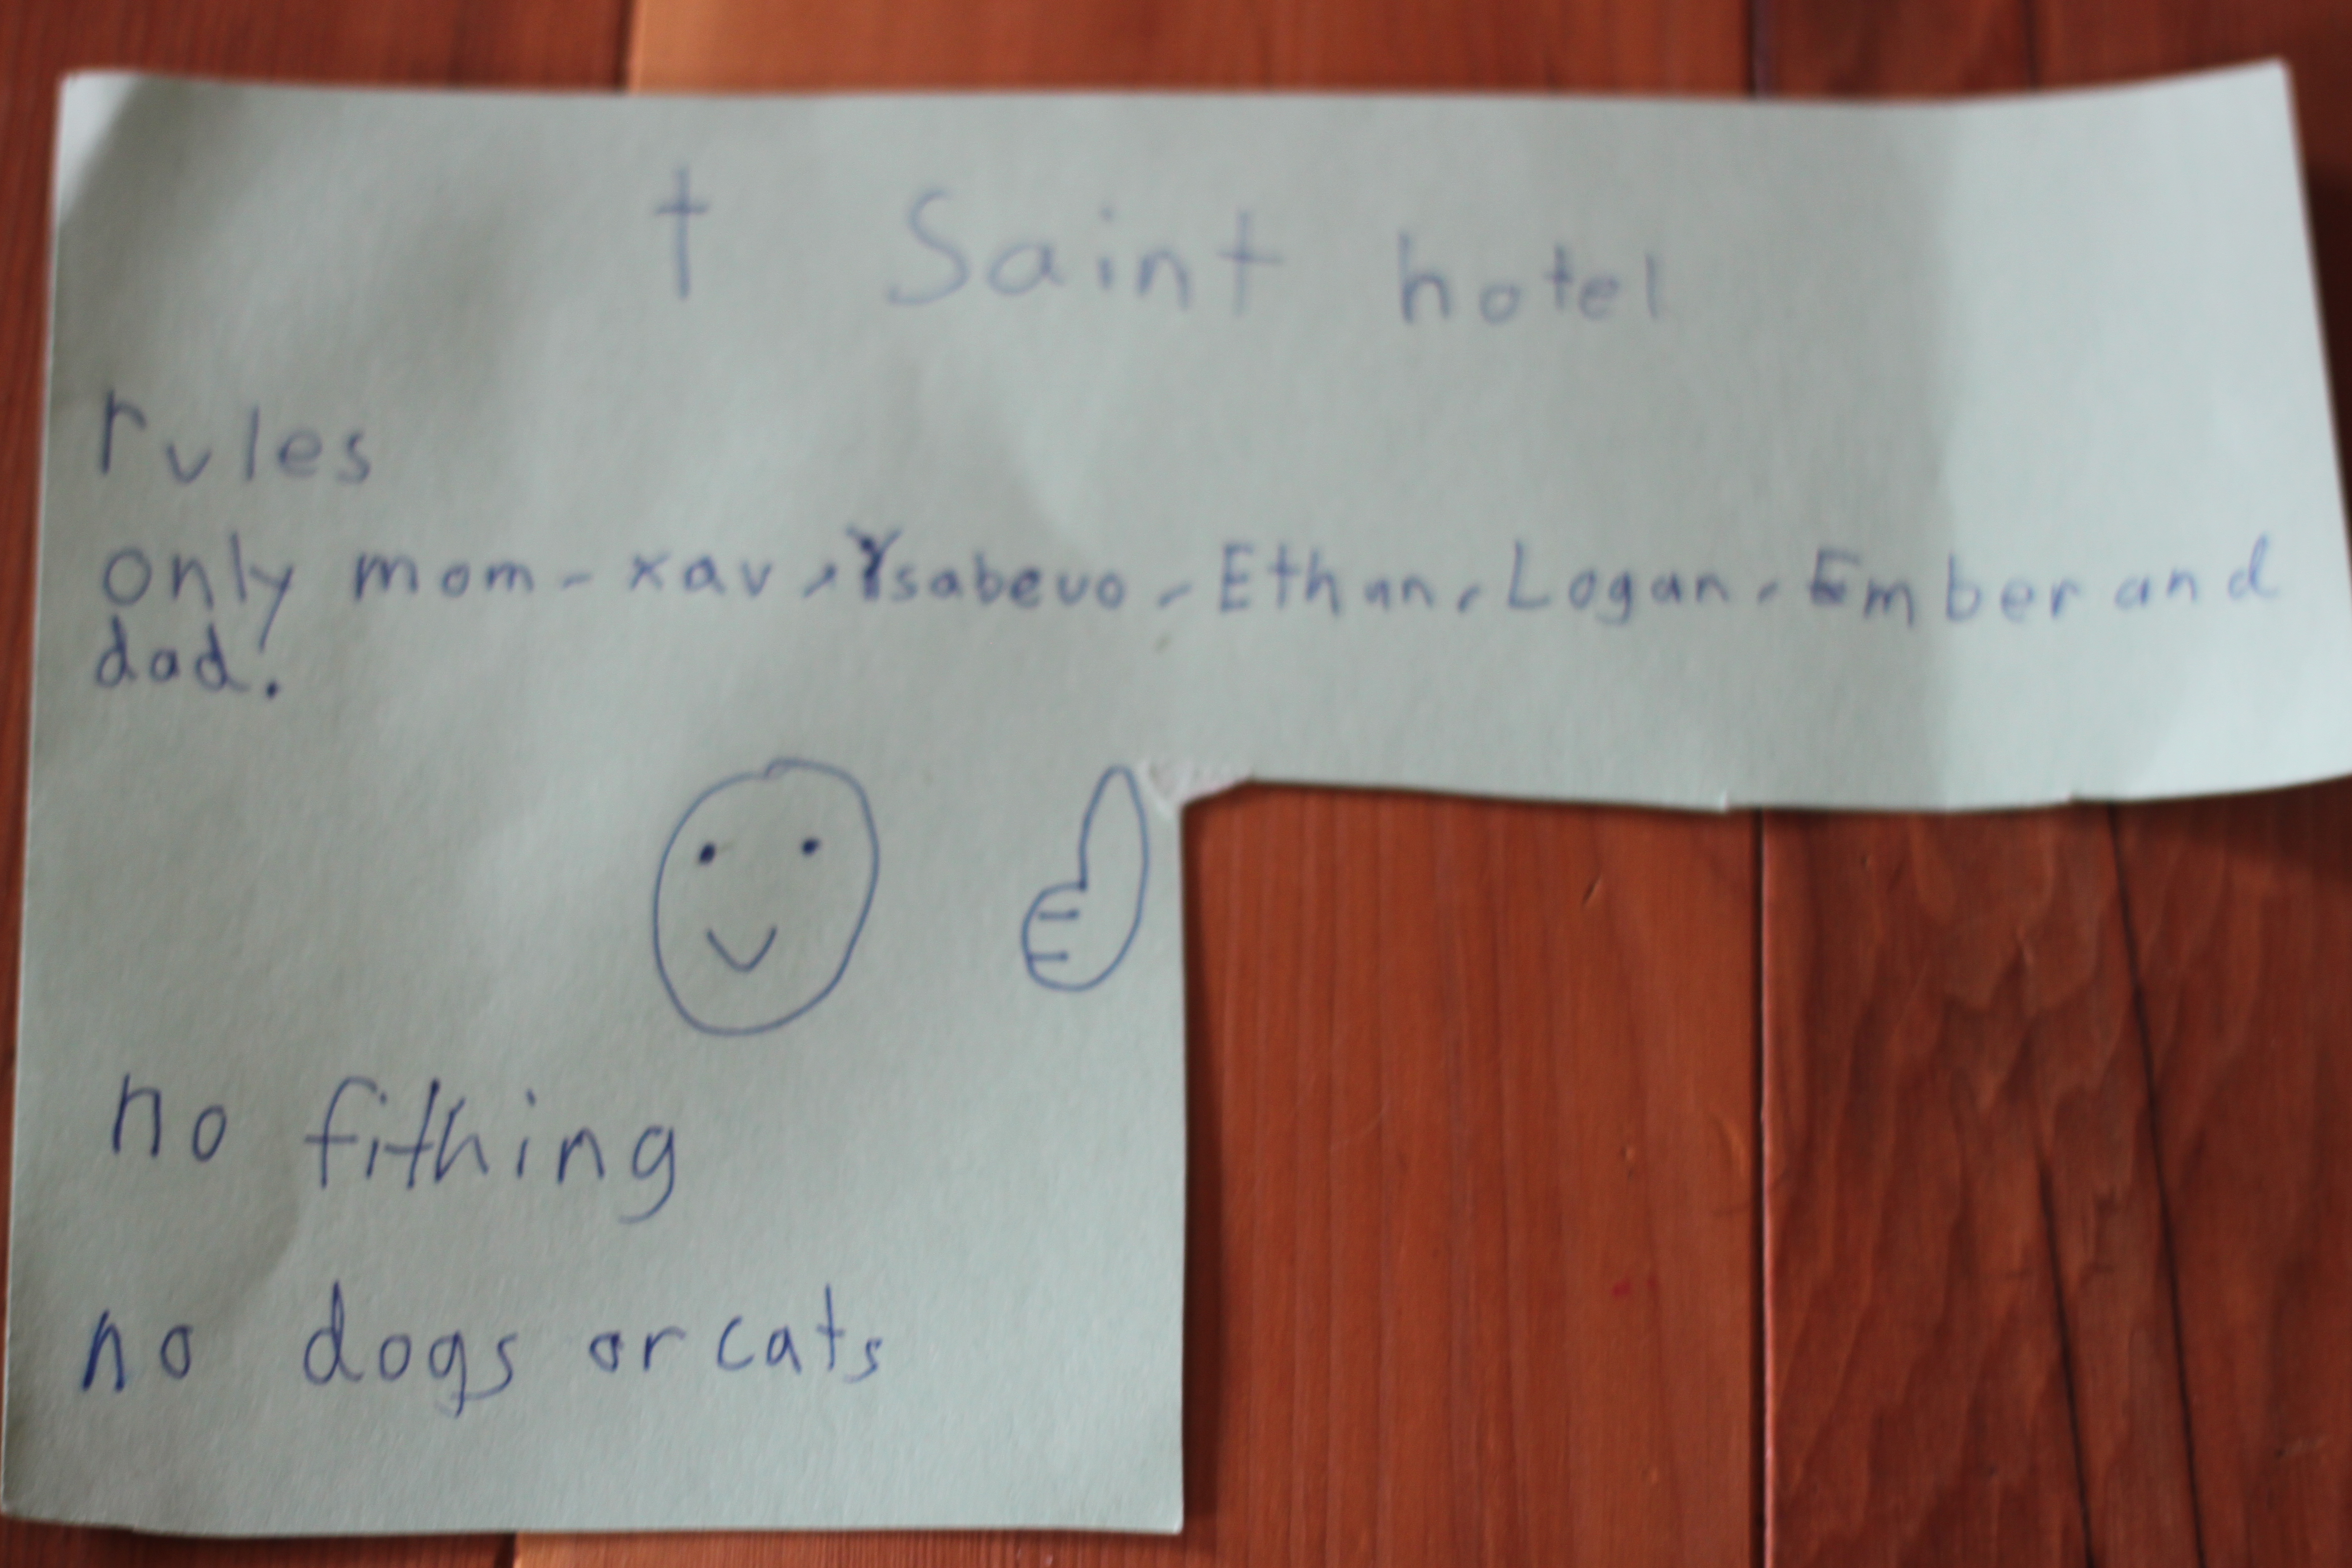 † Saint hotel
rules
only mom - xav, Ysabeuo - Ethan, Logan, Ember and
dad!
no fithing
no dogs or cats